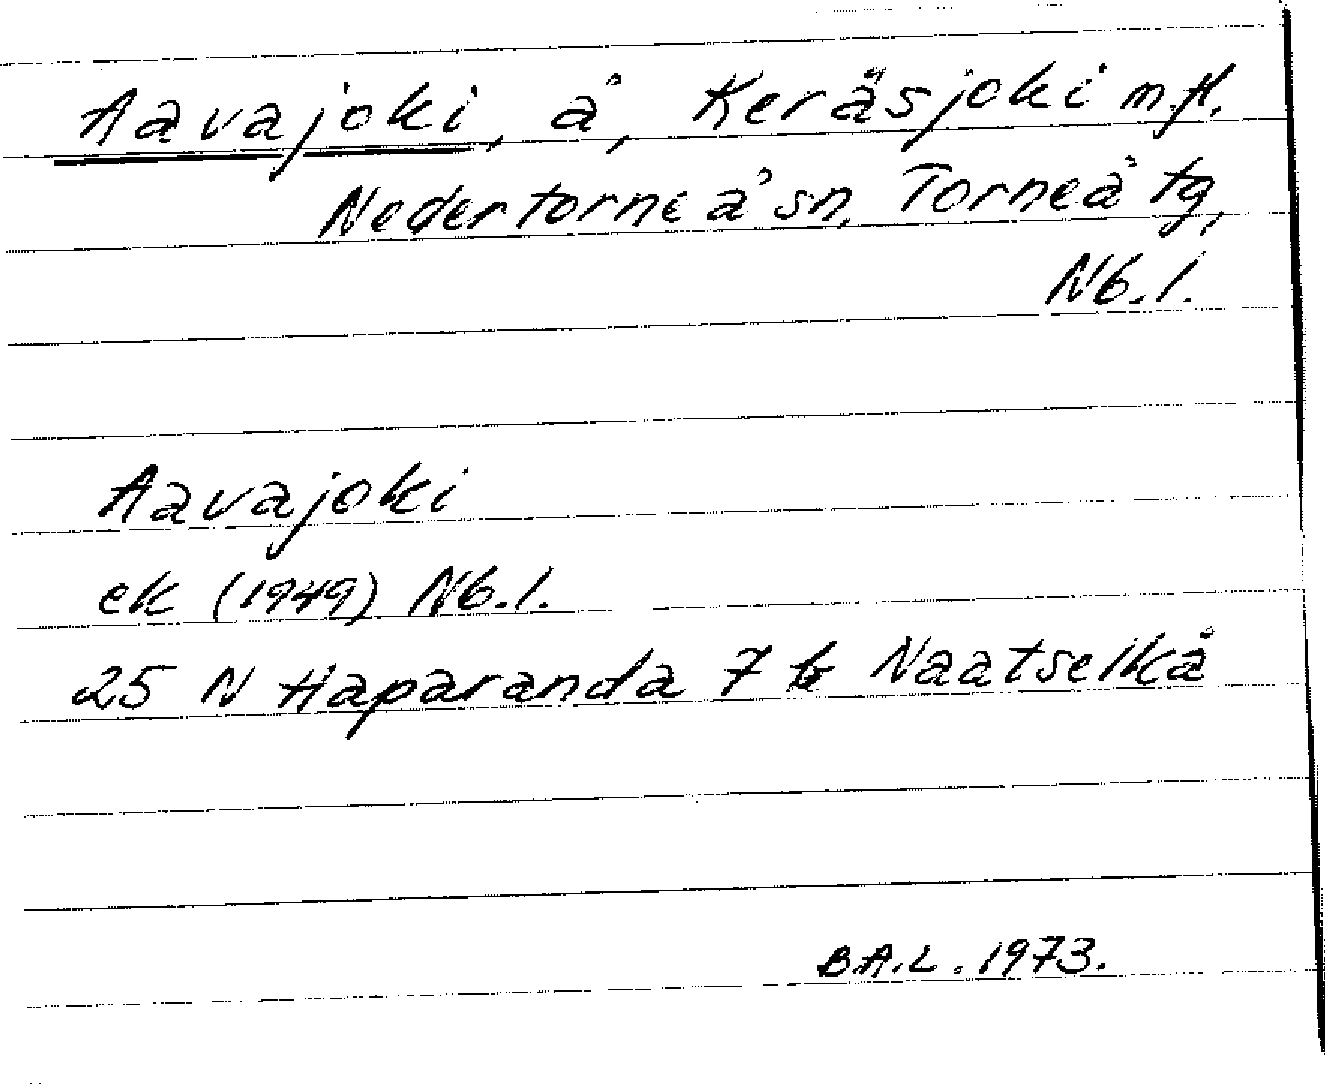 Aavajoki, å, Keräsjoki m.fl.
Nedertorneå sn, Torneå tg,
Nb.l.
Aavajoki
ek (1949) Nb.l.
25 N Haparanda 7 b Naatselkä
B.A.L. 1973.